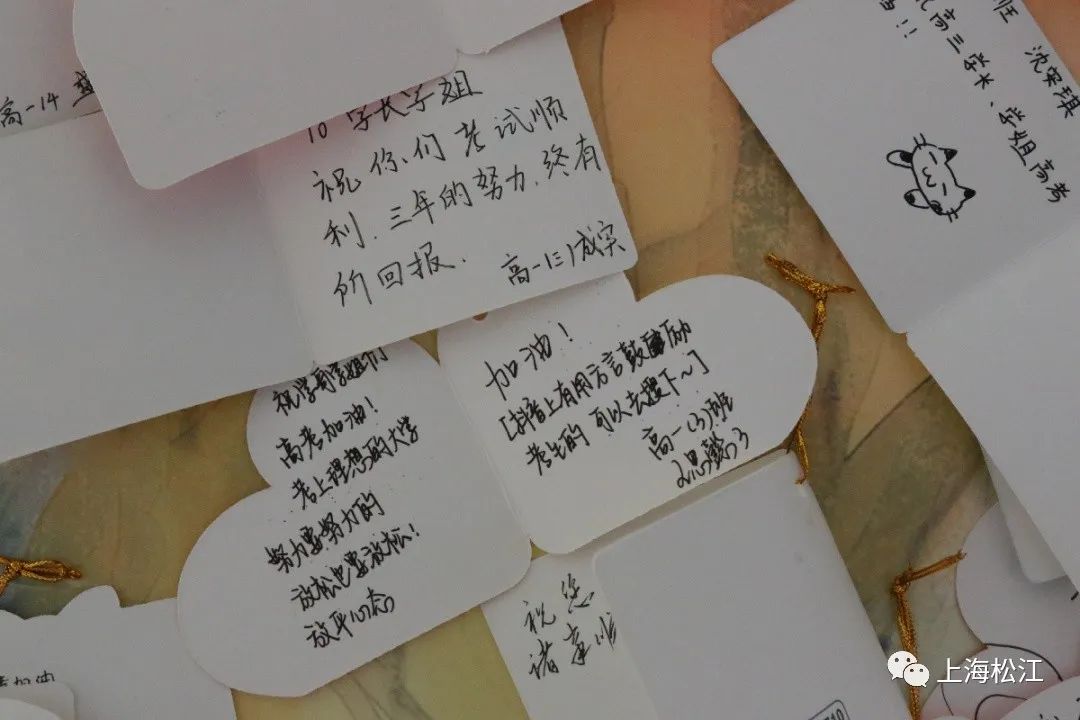 高一14
学长学姐
祝你们考试顺
利.三年的努力.终有
价回报.
高一(三)成实
沈安琪
高三学长、学姐高考
!!
祝学哥学姐们
高考加油!
考上理想的大学
努力要努力的
放松也要放松!
放平心态
加油!
[抖音上有用方言鼓励
考生的 可以去搜下~]
高一(3)班
祝您
诸事顺
加油
上海松江